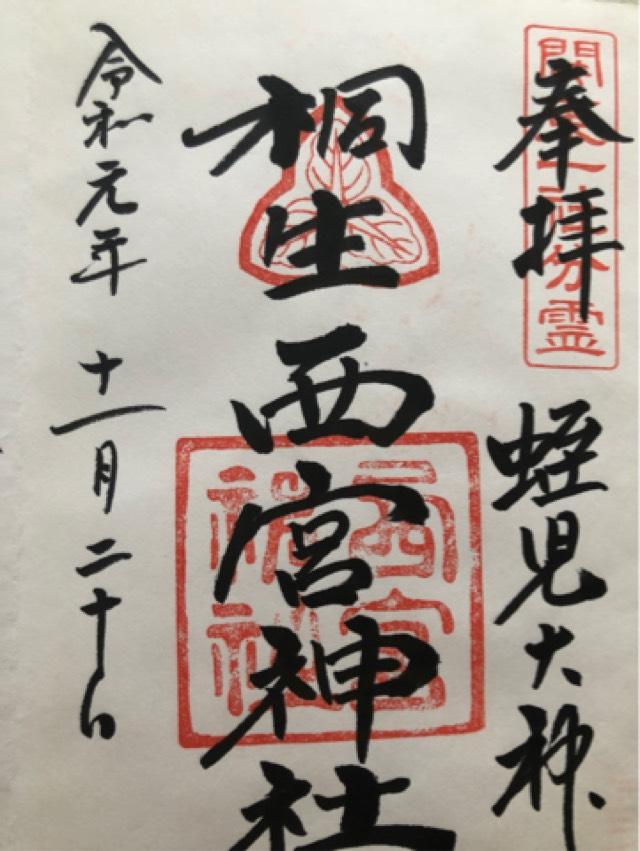 奉拝
関東一社御分霊
蛭児大神
桐生西宮神社
西宮神社
令和元年 十一月二十日